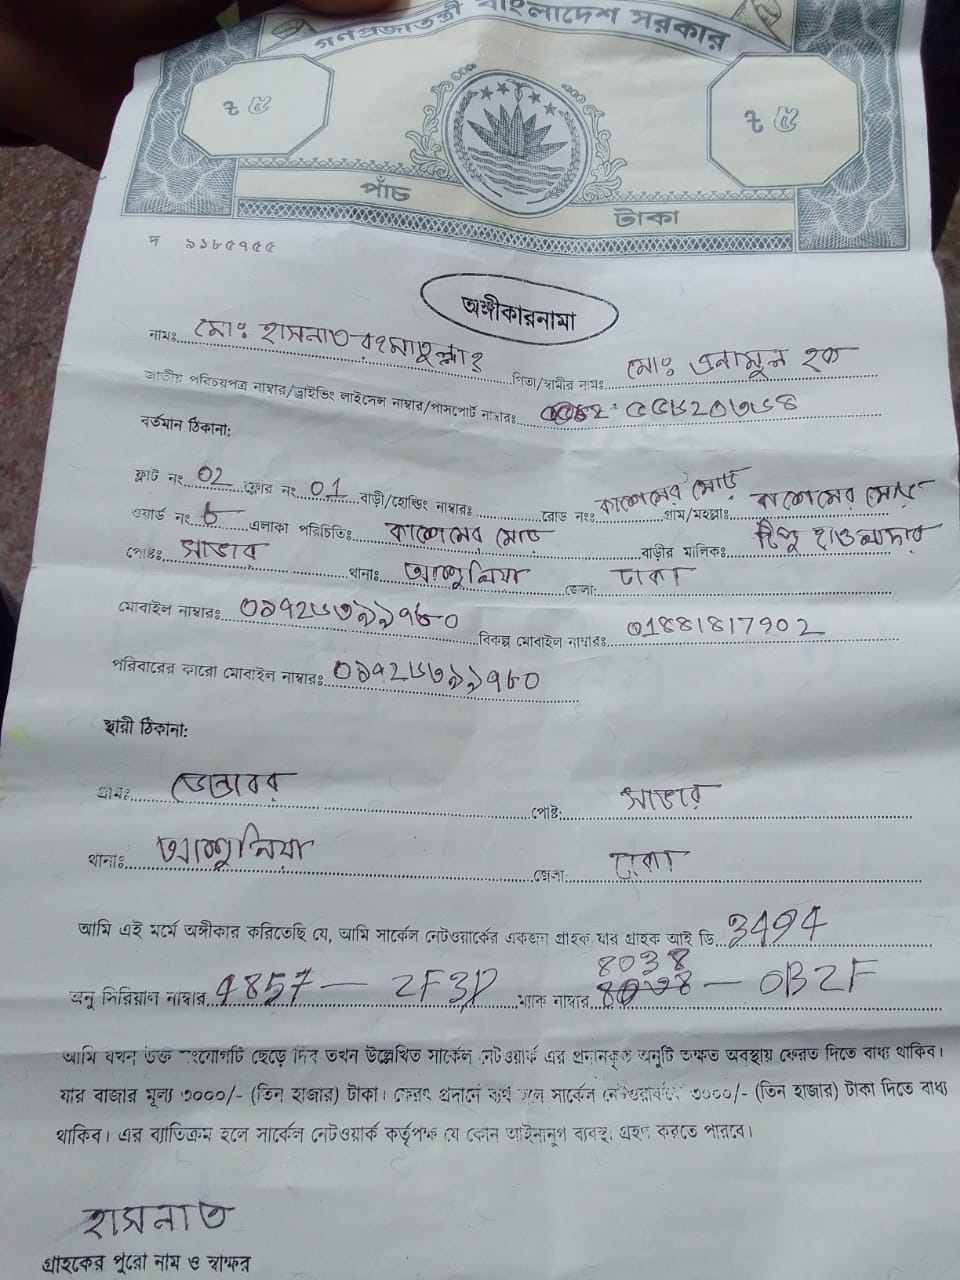 গণপ্রজাতন্ত্রী বাংলাদেশ সরকার
৳ ৫ ৳ ৫
পাঁচ টাকা
দ ৯১৮৫৭৫৫
অঙ্গীকারনামা
নামঃ মোঃ হাসনাত রহমাতুল্লাহ পিতা/স্বামীর নামঃ মোঃ এনামুল হক
জাতীয় পরিচয়পত্র নাম্বার/ড্রাইভিং লাইসেন্স নাম্বার/পাসপোর্ট নাম্বারঃ
বর্তমান ঠিকানা:
ফ্লাট নং 02 ফ্লোর নং 01 বাড়ী/হোল্ডিং নাম্বারঃ রোড নংঃ কাশেমের মোড় গ্রাম/মহল্লাঃ কাশেমের মোড়
ওয়ার্ড নং ৮ এলাকা পরিচিতিঃ কাশেমের মোড় বাড়ীর মালিকঃ টিপু হাওলাদার
পোষ্টঃ সাভার থানাঃ আশুলিয়া জেলা: ঢাকা
মোবাইল নাম্বারঃ ০১৭২৬৩৯৯৭৮০ বিকল্প মোবাইল নাম্বারঃ 01881817902
পরিবারের কারো মোবাইল নাম্বারঃ ০১৭২৬৩৯৯৭৮০
স্থায়ী ঠিকানা:
গ্রামঃ ডেন্ডাবর পোষ্ট: সাভার
থানাঃ আশুলিয়া জেলা: ঢাকা
আমি এই মর্মে অঙ্গীকার করিতেছি যে, আমি সার্কেল নেটওয়ার্কের একজন গ্রাহক যার গ্রাহক আই ডি 3494
8038
অনু সিরিয়াল নাম্বার 4857 - 2F3D ম্যাক নাম্বার - 0B2F
আমি যখন উক্ত সংযোগটি ছেড়ে দিব তখন উল্লেখিত সার্কেল নেটওয়ার্ক এর প্রদানকৃত অনুটি অক্ষত অবস্থায় ফেরত দিতে বাধ্য থাকিব।
যার বাজার মূল্য ৩০০০/- (তিন হাজার) টাকা। ফেরৎ প্রদানে ব্যর্থ হলে সার্কেল নেটওয়ার্ককে ৩০০০/- (তিন হাজার) টাকা দিতে বাধ্য
থাকিব। এর ব্যতিক্রম হলে সার্কেল নেটওয়ার্ক কর্তৃপক্ষ যে কোন আইনানুগ ব্যবস্থা গ্রহণ করতে পারবে।
হাসনাত
গ্রাহকের পুরো নাম ও স্বাক্ষর